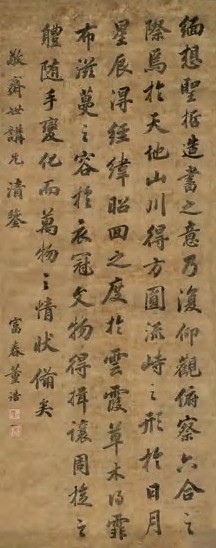 緬想聖哲造書之意乃復仰觀俯察六合之
際焉於天地山川得方圓流峙之形於日月
星辰得經緯昭回之度於雲霞草木得霏
布滋蔓之容於衣冠文物得揖讓周旋之
體隨手變化而萬物之情狀備矣
敬齋世講兄清鑒
富春董誥